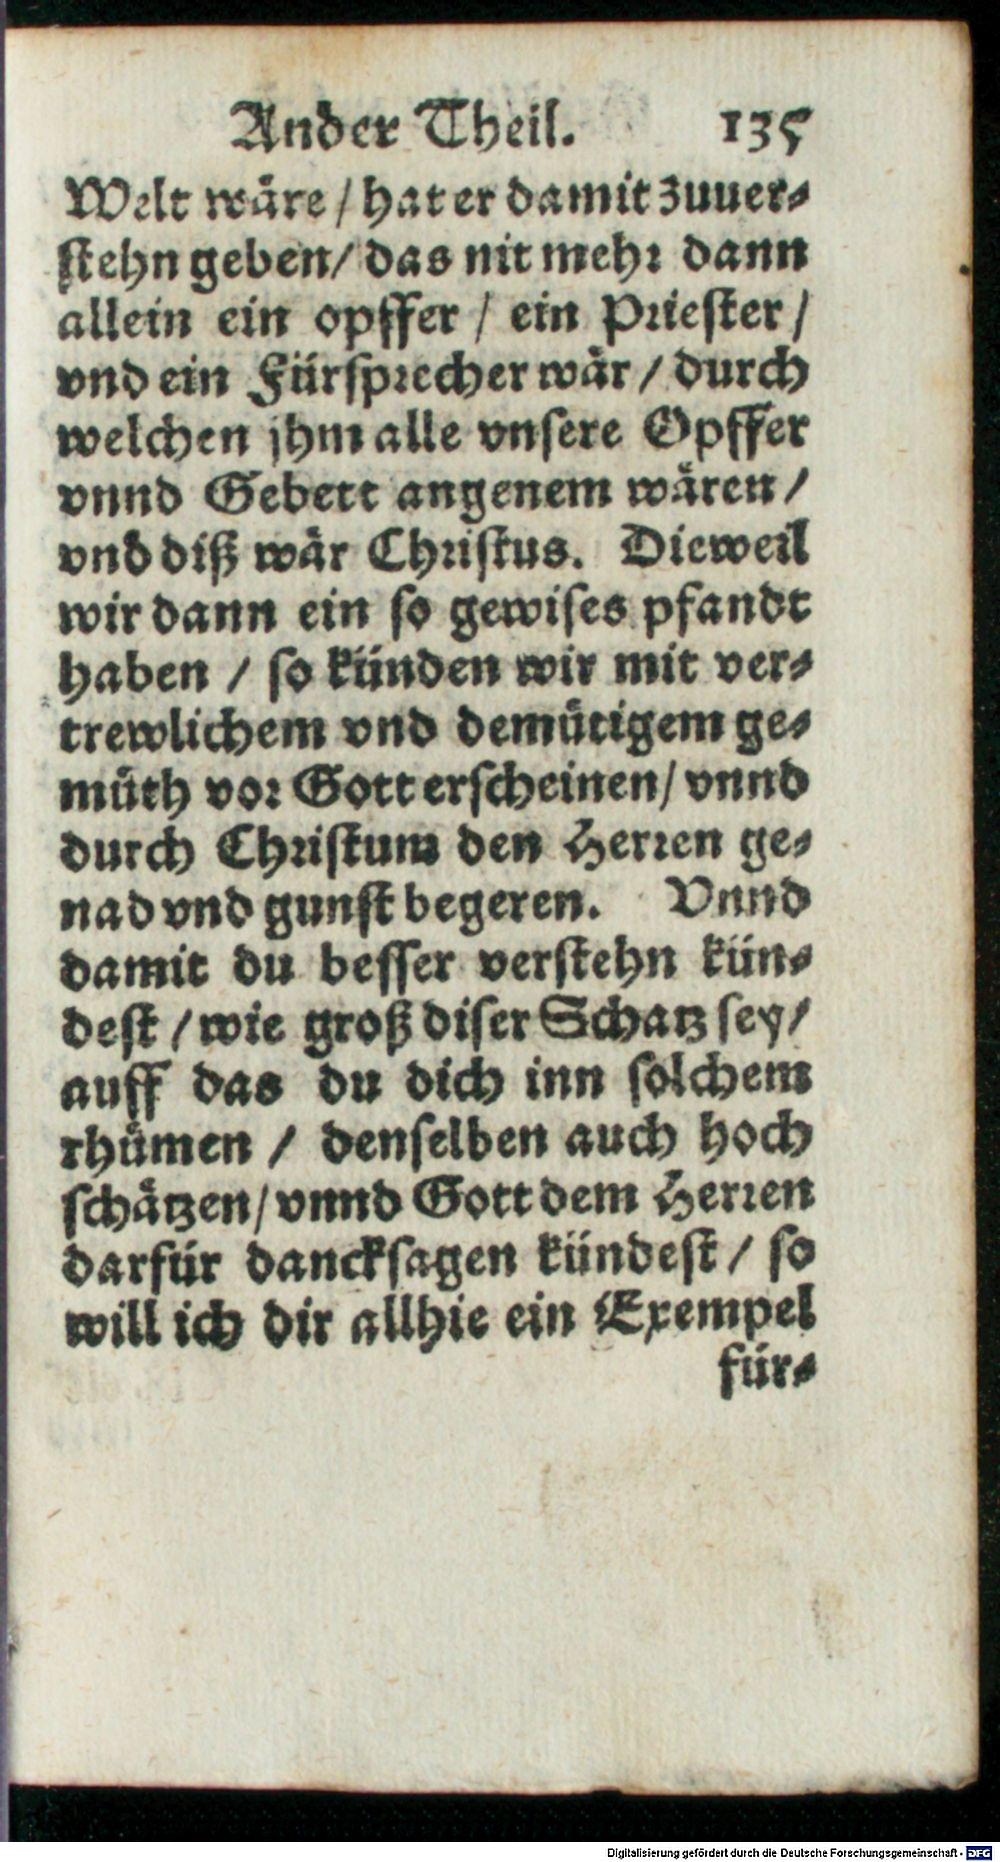 Ander Theil. 135
Welt wäre / hat er damit zuuer-
stehn geben / das nit mehr dann
allein ein opffer / ein Priester /
vnd ein Fürsprecher wär / durch
welchen jhm alle vnsere Opffer
vnnd Gebett angenem wären /
vnd diß wär Christus. Dieweil
wir dann ein so gewises pfandt
haben / so künden wir mit ver-
trewlichem vnd demütigem ge-
müth vor Gott erscheinen / vnnd
durch Christum den Herren ge-
nad vnd gunst begeren. Vnnd
damit du besser verstehn kün-
dest / wie groß diser Schatz sey /
auff das du dich inn solchem
rhümen / denselben auch hoch
schätzen / vnnd Gott dem Herren
darfür dancksagen kündest / so
will ich dir allhie ein Exempel
für-
Digitalisierung gefördert durch die Deutsche Forschungsgemeinschaft - DFG